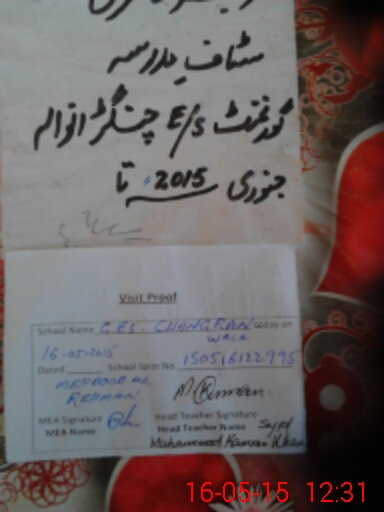 سٹاف مدرسہ
گورنمنٹ E/S چنگڑانوالہ
جنوری 2015ء تا
Visit Proof
School Name G.E.S. CHANGRAN today on
WALA
16-05-2015
Dated School form No 150516122995
MEHBOOB UR
REHMAN
MEA Signature Head Teacher Signature
MEA Name Head Teacher Name Syed
Muhammad Kamran
16-05-15 12:31